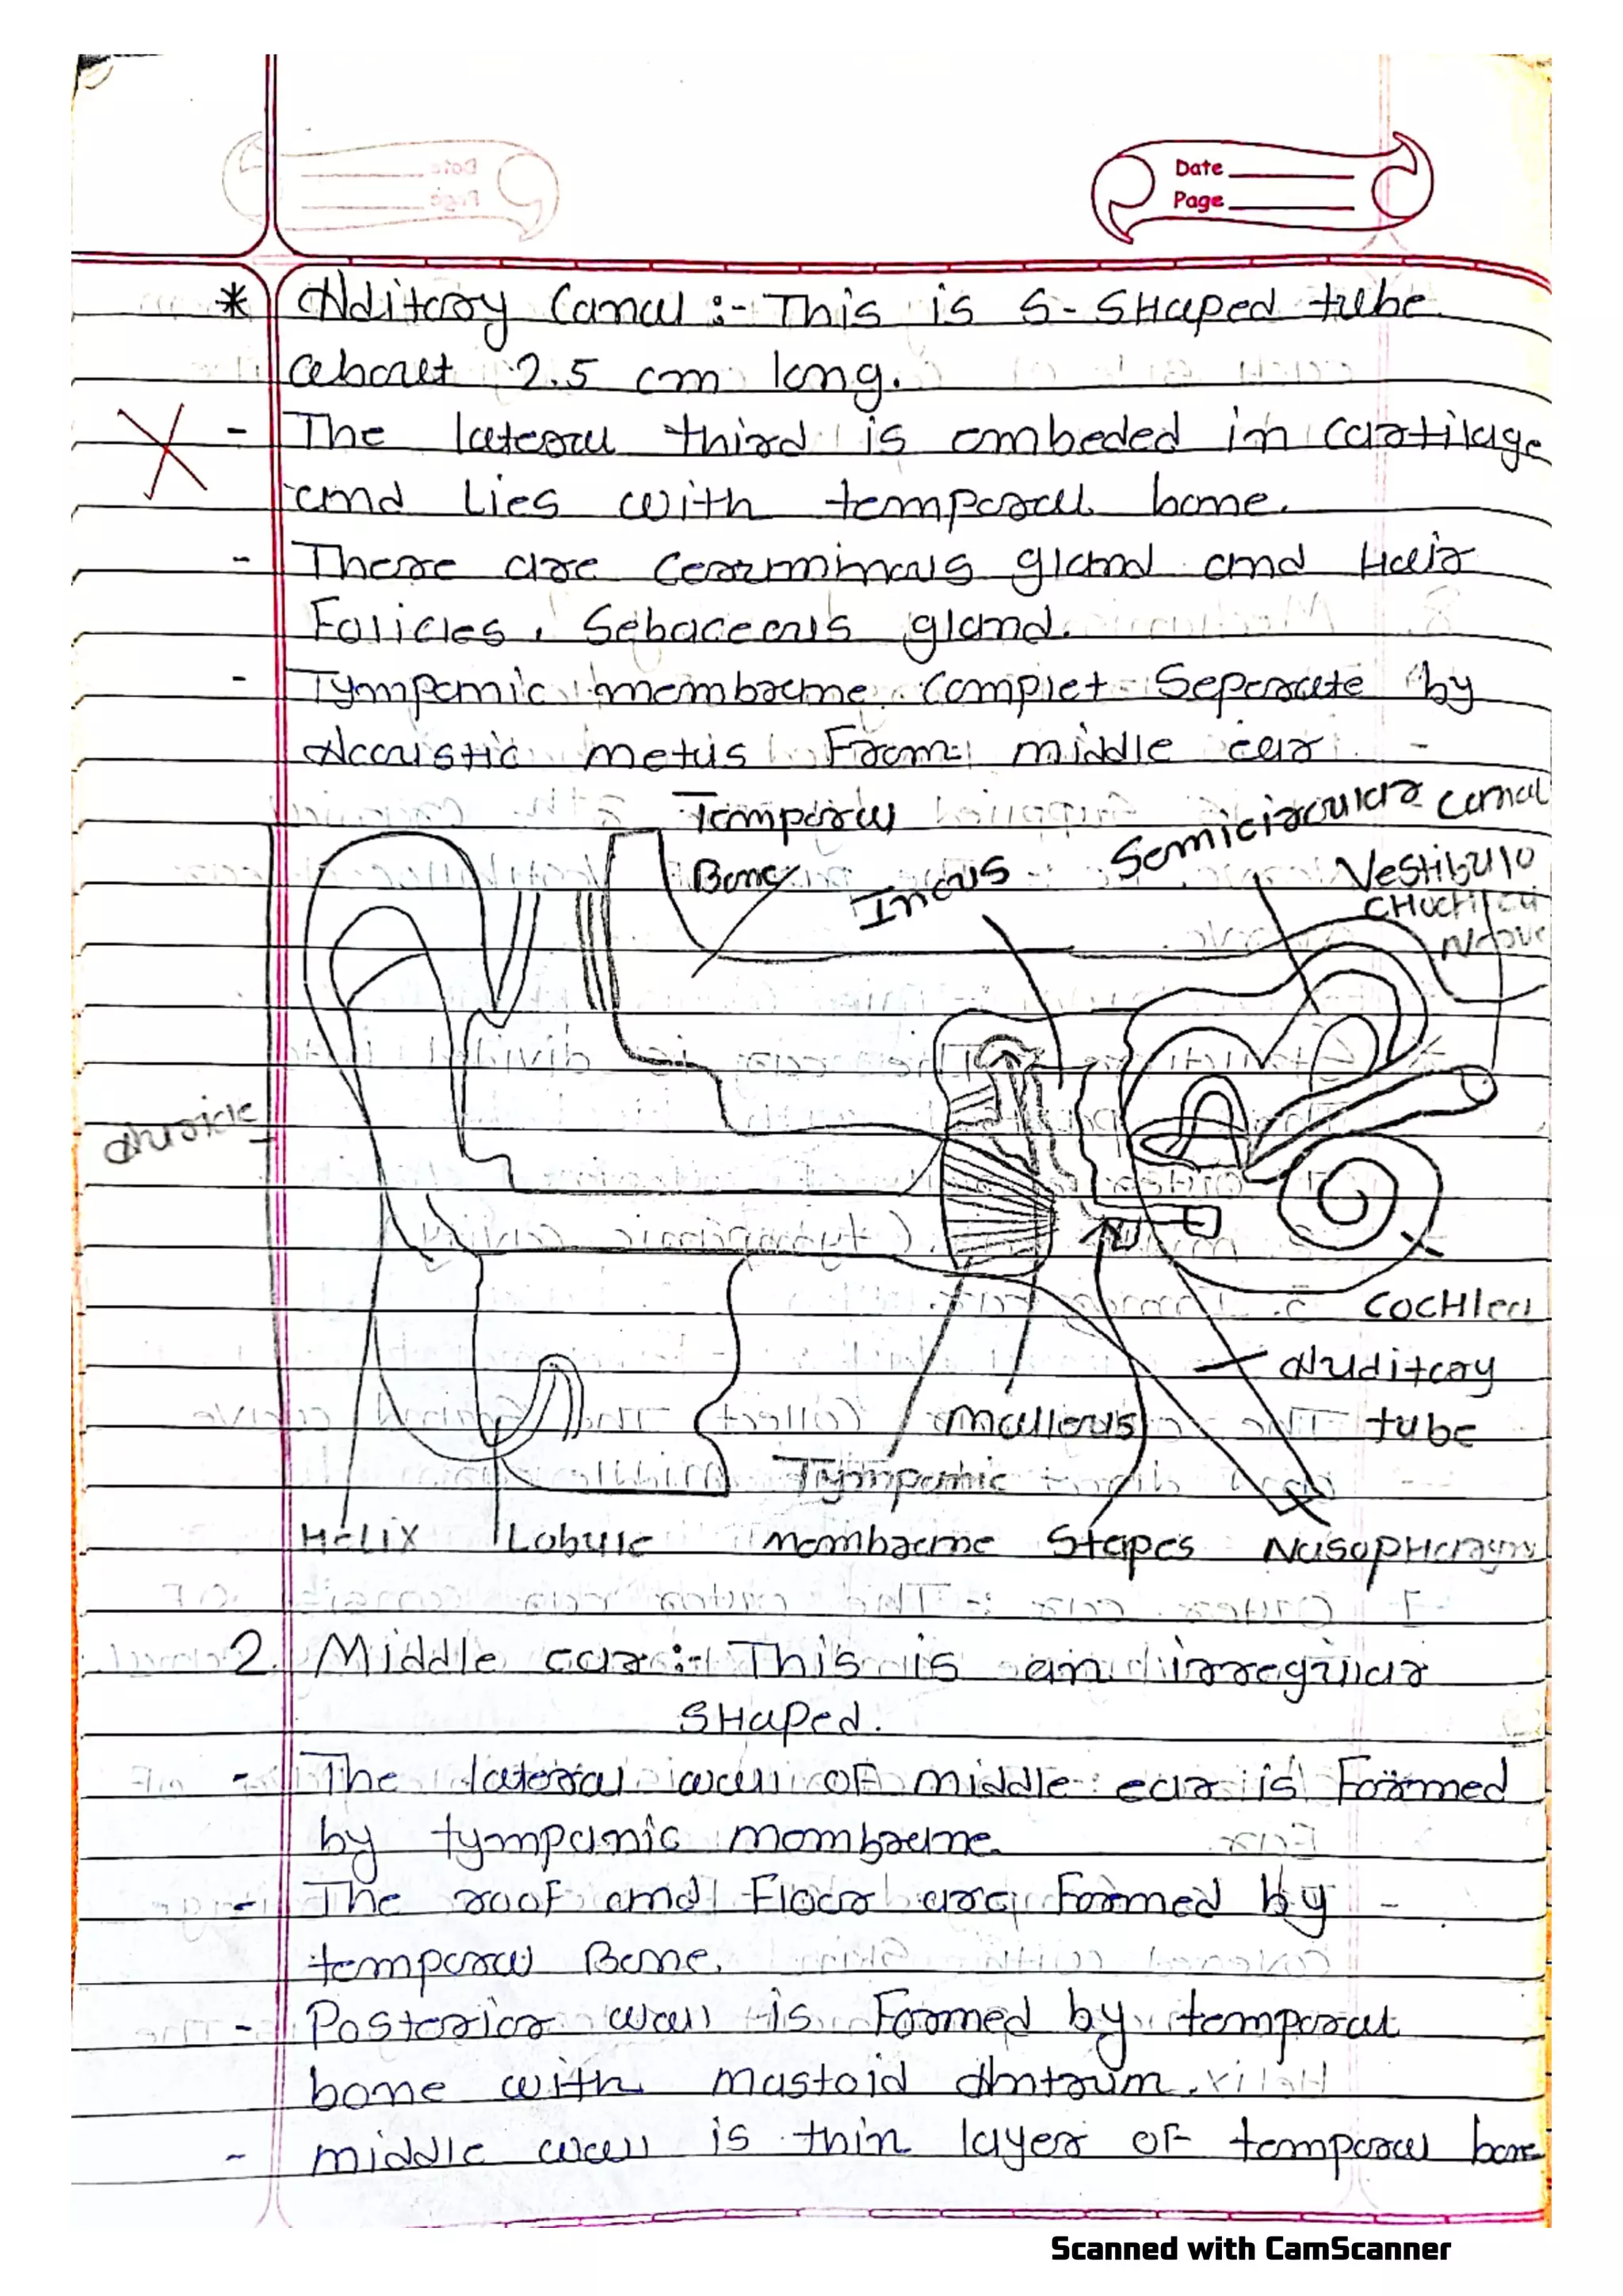 Date
Page
* Aditory Canal :- This is S-SHaped tube
about 2.5 cm long.
- The lateral third is embeded in Cartilage
and Lies with temporal bone.
- There are Ceruminous gland and Hair
Folicles, Sebaceous gland.
- Tympanic membrane Complet Seperate by
Acoustic metus From middle ear
Temporal
Bone
Incus
Semicircular canal
Vestibulo
CHochlea
Nerve
Auricle
Cochlea
Auditory
tube
Malleus
Tympanic
membrane
Helix
Lobule
Stapes
Nasopharynx
2. Middle ear :- This is an irregular
SHaped.
- The lateral wall OF middle ear is Formed
by tympanic membrane.
- The roof and Floor are Formed by -
temporal Bone.
- Posterior wall is Formed by temporal
bone with mastoid Antrum.
- middle wall is thin layer OF temporal bone
Scanned with CamScanner